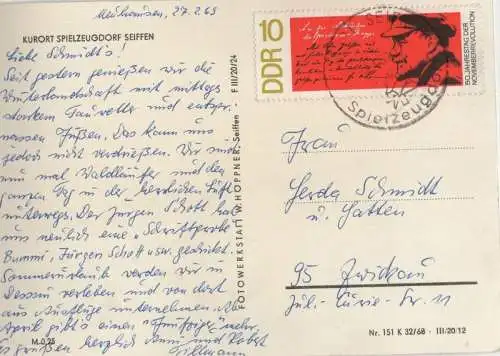 Neuhausen, 27.2.69
KURORT SPIELZEUGDORF SEIFFEN
Liebe Schmidt's!
Seit gestern genießen wir die
Winterlandschaft mit mittags
starkem Tauwetter und entspr.
nassen Füßen. Das kann uns
jedoch nicht verdrießen. Wir sind
nun mal Waldläufer und den
ganzen Tag in der herrlichen Luft
unterwegs. Der Jürgen Schott hat
uns neulich eine "Schriftprobe
Bummi, Jürgen Schott usw. geschickt.
Sommerurlaub werden wir in
Dessau verleben und von dort
aus Ausflüge unternehmen. Ab
April gibt's einen
Es grüßen herzlich Anni und Robert
Tillmann
M 0,25
FOTOWERKSTATT W. HÖPPNER, Seiffen F III/20/24
DDR 10
50. JAHRESTAG DER
NOVEMBERREVOLUTION
SEI
Spielzeugdor
Frau
Gerda Schmidt
u. Gatten
95 Zwickau
Jul.-Curie-Str. 11
Nr. 151 K 32/68 · III/20/12